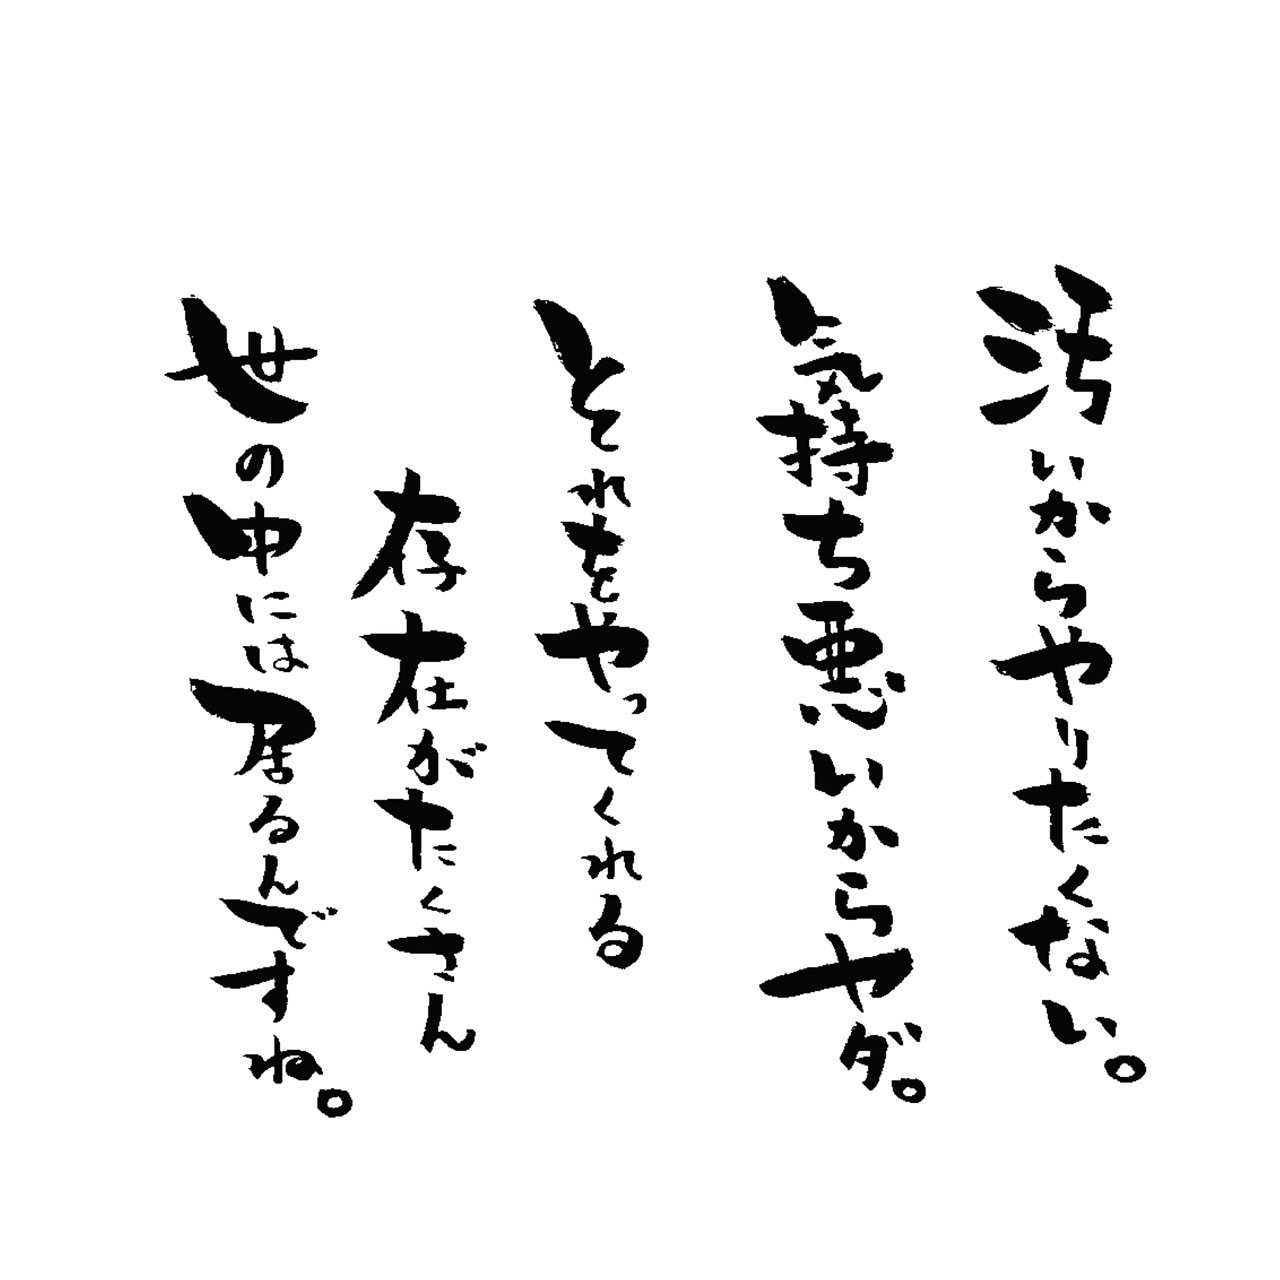 汚いからやりたくない。
気持ち悪いからヤダ。
それをやってくれる
存在がたくさん
世の中には居るんですね。